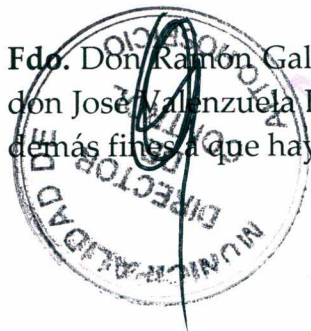 Fdo. Don Ramón Gal
don José Valenzuela
demás fines a que hay
MUNICIPALIDAD DE
DIRECTOR DE CONTROL